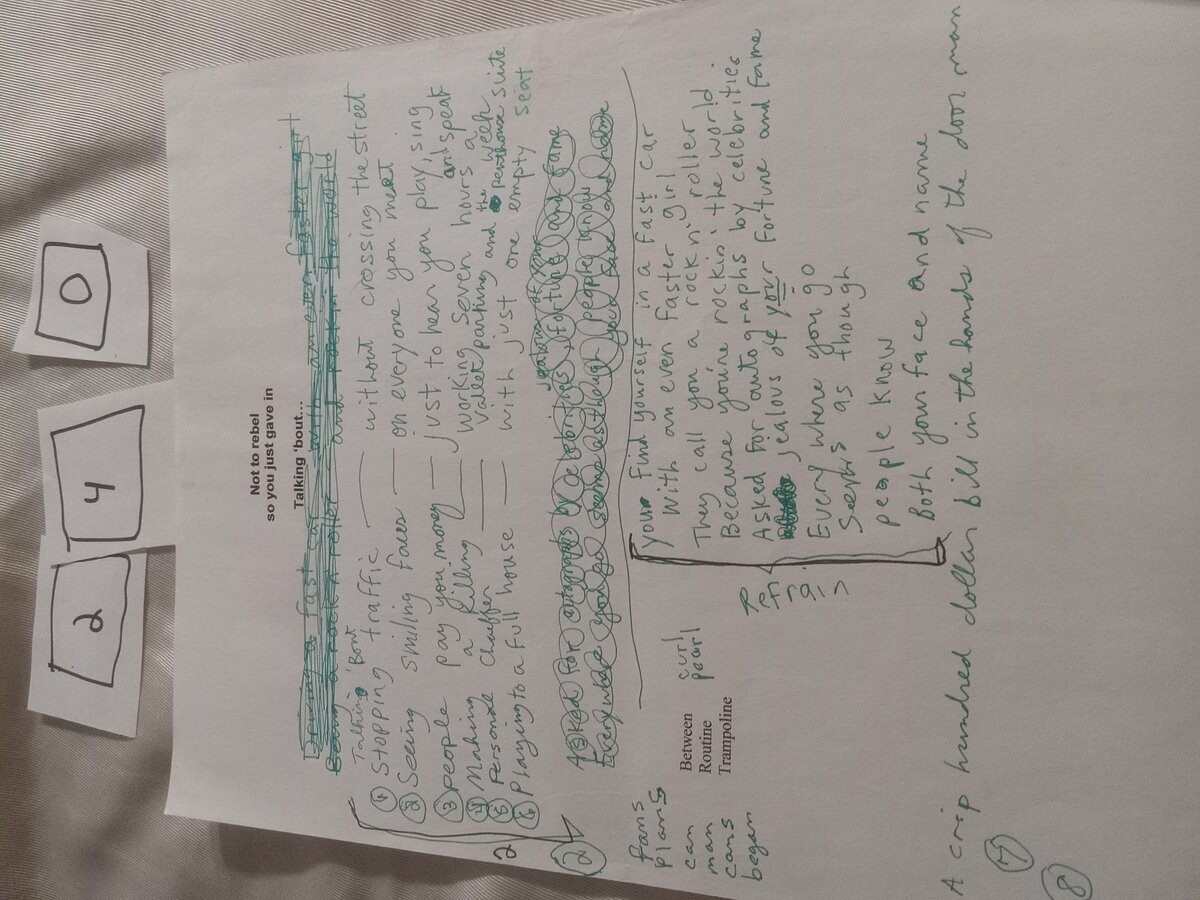 2 4 0
Not to rebel
so you just gave in
Talking 'bout...
Driving a fast car with an even faster girl
Being a rock n roller and rockin the world
Talking 'Bout
① Stopping traffic — without crossing the street
② Seeing smiling faces — on everyone you meet
③ People pay you money — just to hear you play, sing and speak
④ Making a killing — working seven hours a week
⑤ Personal chauffer — Valet parking and the penthouse suite
⑥ Playing to a full house — with just one empty seat
2
②
Asked for autographs by celebrities, jealous of your fortune and fame
Everywhere you go seems as though people know your face and name
You find yourself in a fast car
With an even faster girl
They call you a rock n' roller
Because you're rockin' the world
Asked for autographs by celebrities
jealous of your fortune and fame
Every where you go
Seems as though
people know
Both your face and name
Refrain
curl
pearl
Between
Routine
Trampoline
fans
plans
can
man
cans
began
A crip hundred dollar bill in the hands of the door man
⑦
⑧